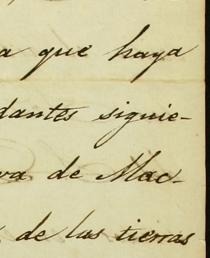 a que haya
dantes siguie-
va de Mac-
de las tierras